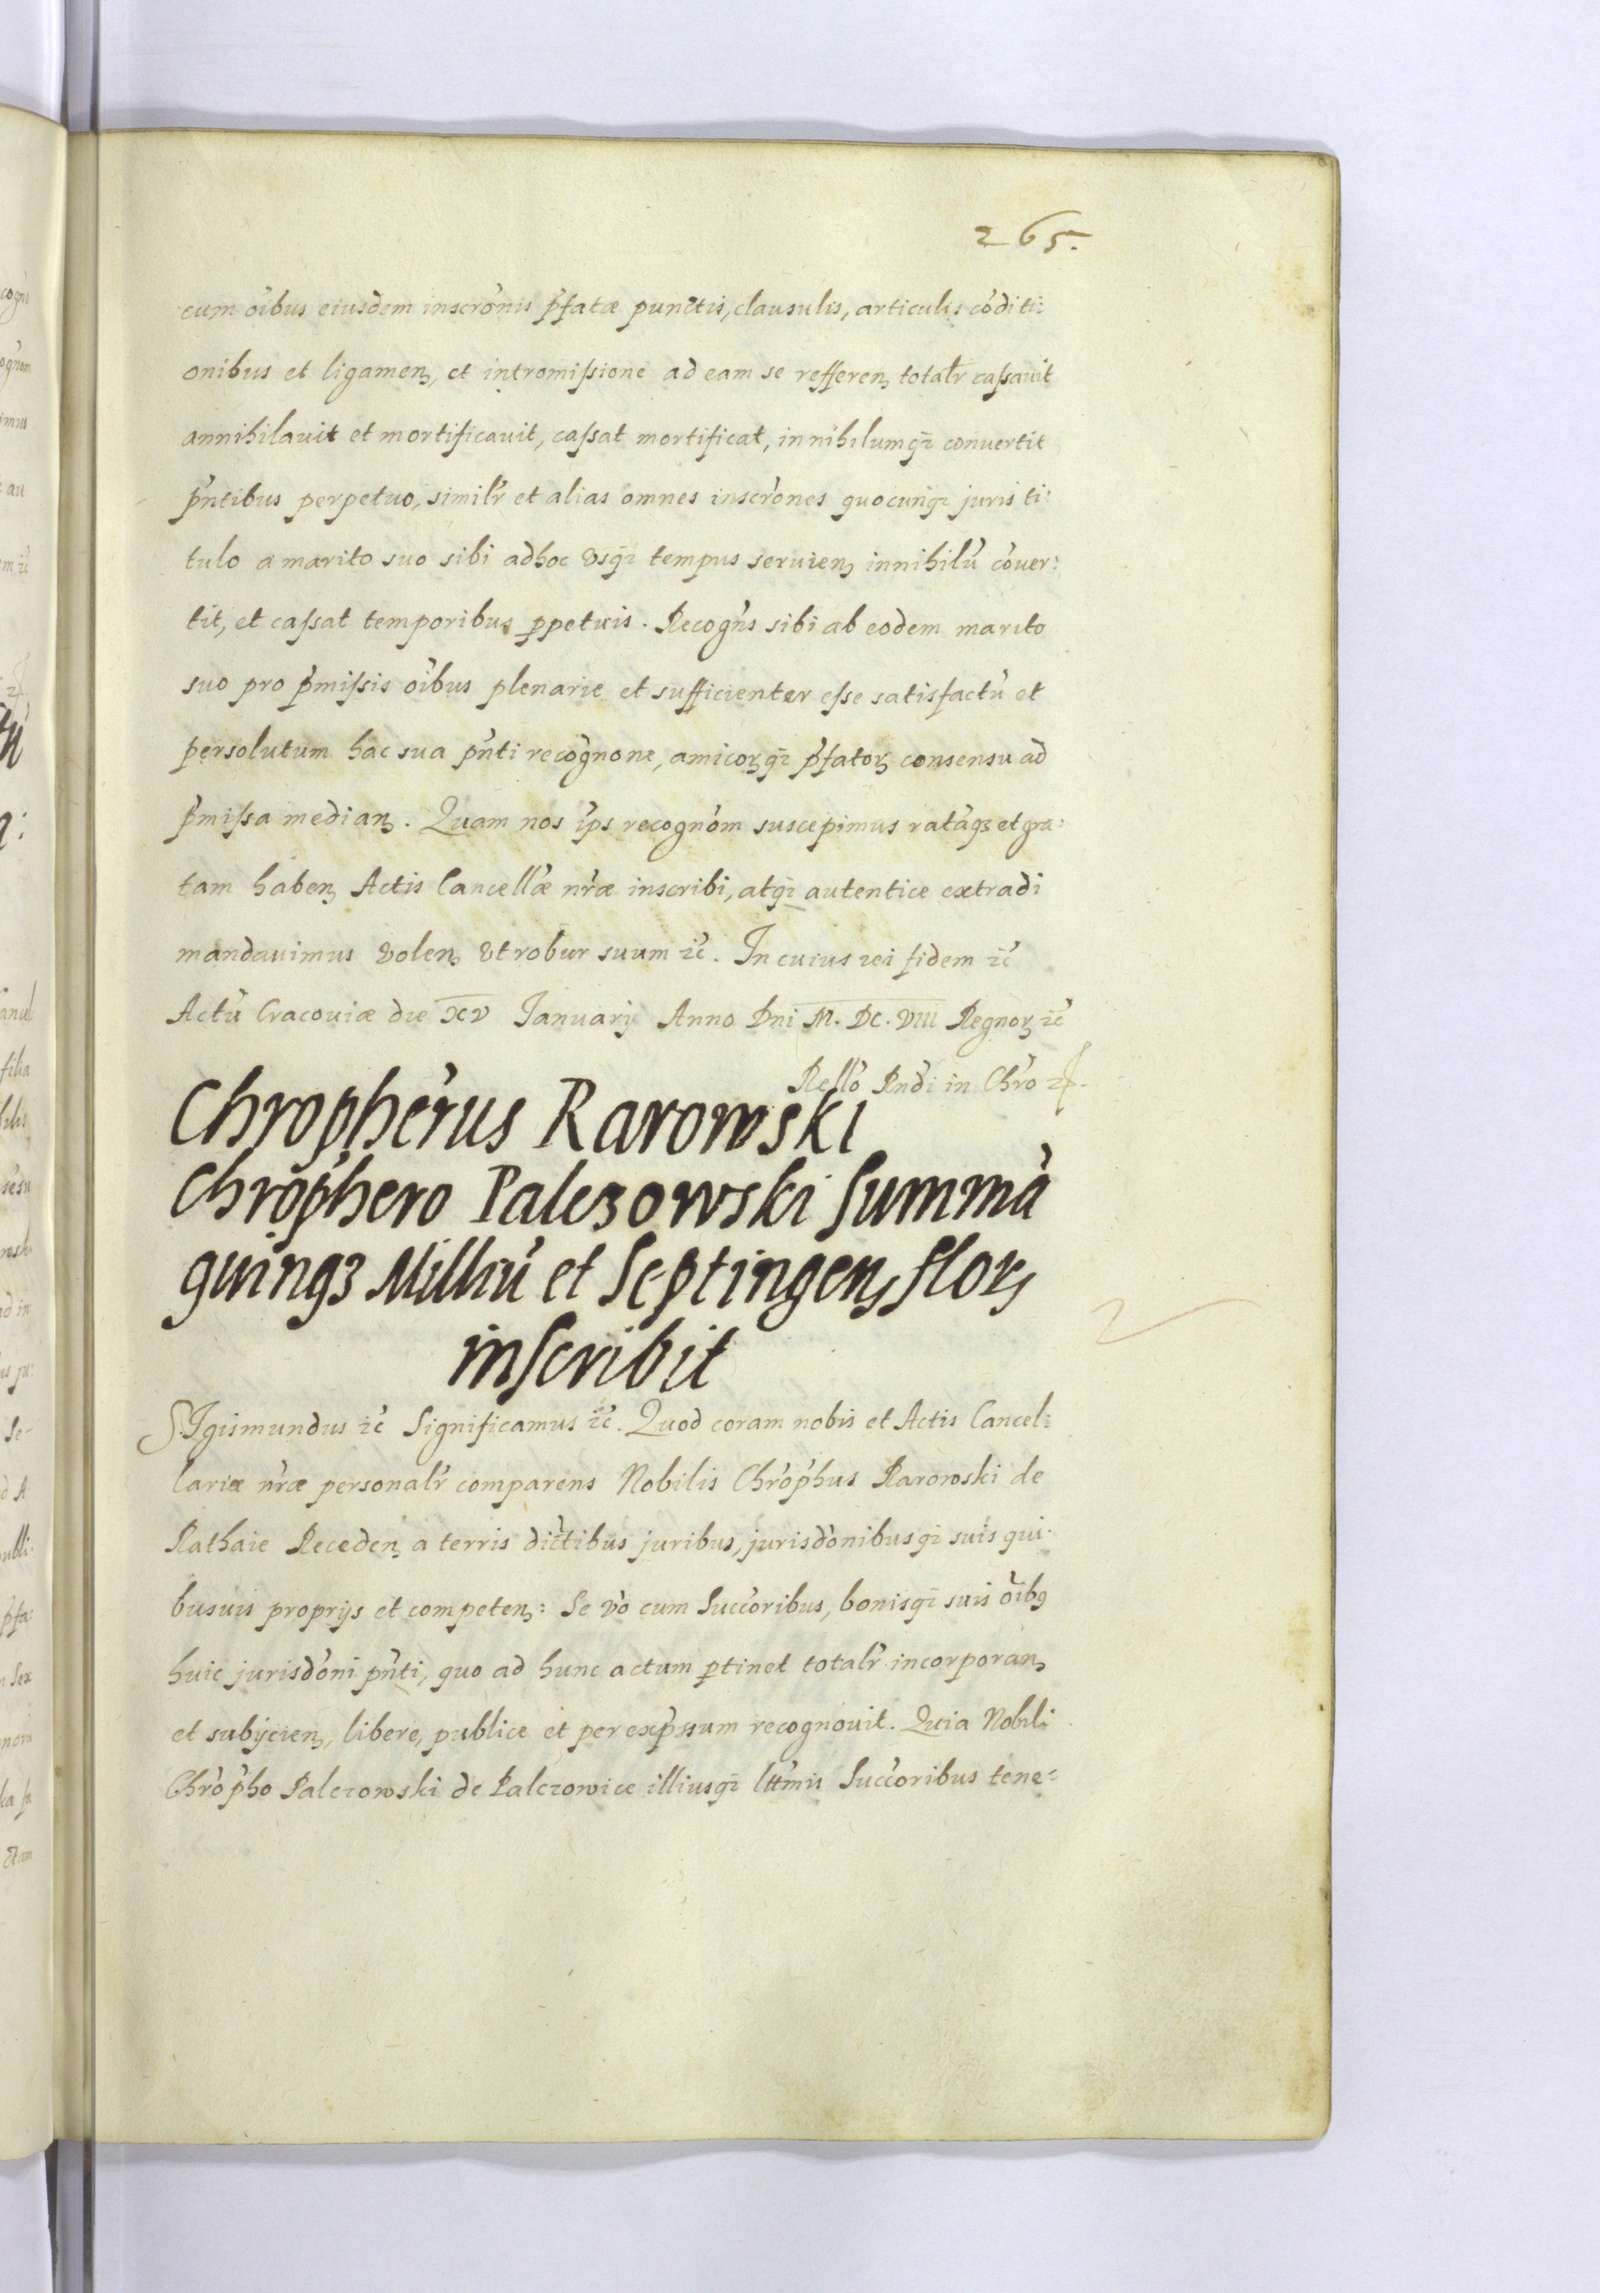 265.
cum oībus eiusdem inscrōnis p̄fatæ punctis, clausulis, articulis cōditi:
onibus et ligamenꝫ, et intromiſsione ad eam se refferenꝫ totalr̄ caſsavit
annihilavit et mortificavit, caſsat mortificat, in nihilumqꝫ convertit
p̄ntibus perpetuo, similr̄ et alias omnes inscrōnes quocunqꝫ juris ti:
tulo a marito suo sibi adhoc vsqꝫ tempus servienꝫ in nihilū cōver:
tit, et caſsat temporibus ꝑpetuis. Recogn̄s sibi ab eodem marito
suo pro p̄miſsis oībus plenarie et sufficienter eſse satisfactū et
persolutum hac sua p̄nti recōgnone, amicorꝫqꝫ p̄fatorꝫ consensu ad
p̄miſsa medianꝫ. Quam nos ip̄s recognōm suscepimus ratāqꝫ et gra:
tam habenꝫ Actis Cancellǣ nr̄æ inscribi, atqꝫ autentice extradi
mandavimus volenꝫ vt robur suum ꝛc̄. In cuius rei fidem ꝛc̄
Actū Cracoviæ die XV Ianuarij Anno Dni M. DC. VIII Regnorꝫ ꝛc̄
Rellō Rndi in Chrō ꝛc̄.
Chrophērus Rarowski
Chrophero Palczowski Summā
quinqꝫ Milliū et Septingenꝫ florꝫ
inscribit
SIgismundus ꝛc̄ Significamus ꝛc̄. Quod coram nobis et Actis Cancel:
lariæ nr̄æ personalr̄ comparens Nobilis Chrōphus Rarowski de
Rathaie Recedenꝫ a terris dic̄tibus juribus, jurisdōnibusqꝫ suis qui:
busvis proprijs et competenꝫ: Se vō cum Succ̄oribus, bonisqꝫ suis oībꝰ
huic jurisdōni p̄nti, quo ad hunc actum ꝑtinet totalr̄ incorporanꝫ
et subijcienꝫ, libere, publice et per exp̄ssum recognovit. Quia Nobili
Chrōpho Palczowski de Palczowice illiusqꝫ lttm̄is Succ̄oribus tene: